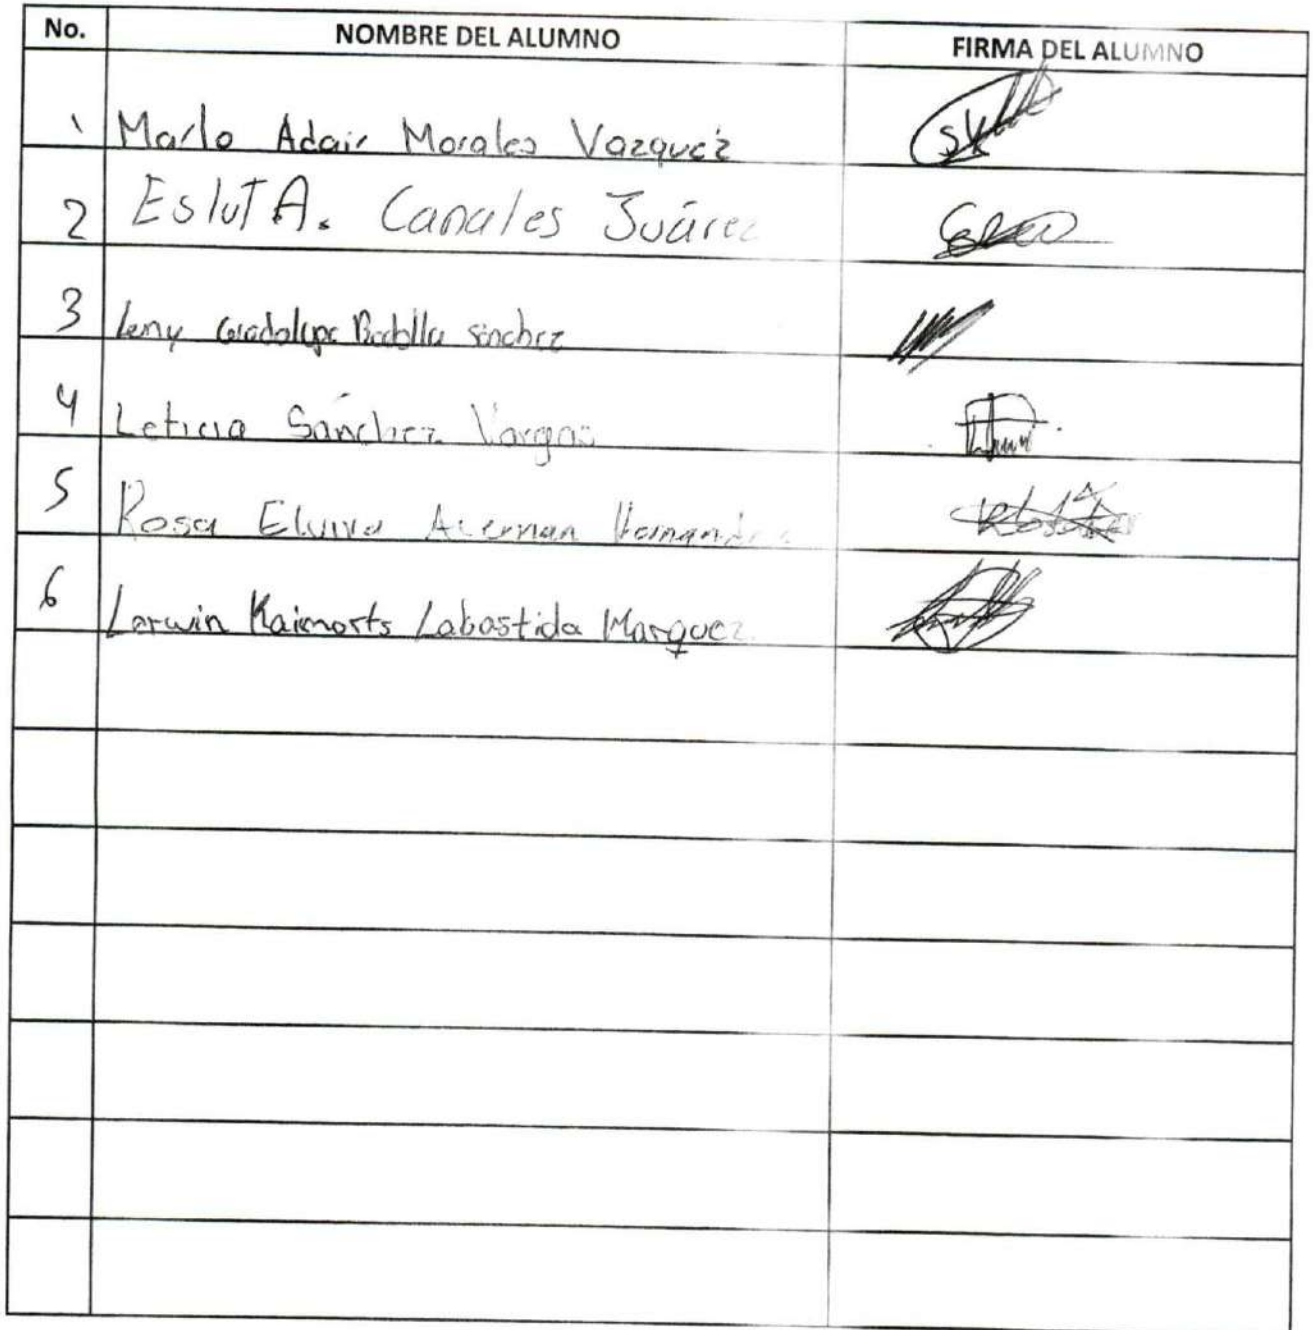 No. NOMBRE DEL ALUMNO FIRMA DEL ALUMNO
1 Marlo Adair Morales Vazquez
2 Eslut A. Canales Juárez
3 Leny Guadalupe Badilla Sánchez
4 Leticia Sánchez Vargas
5 Rosa Elvira Hernandez
6 Lorwin Kaimorts Labastida Marquez